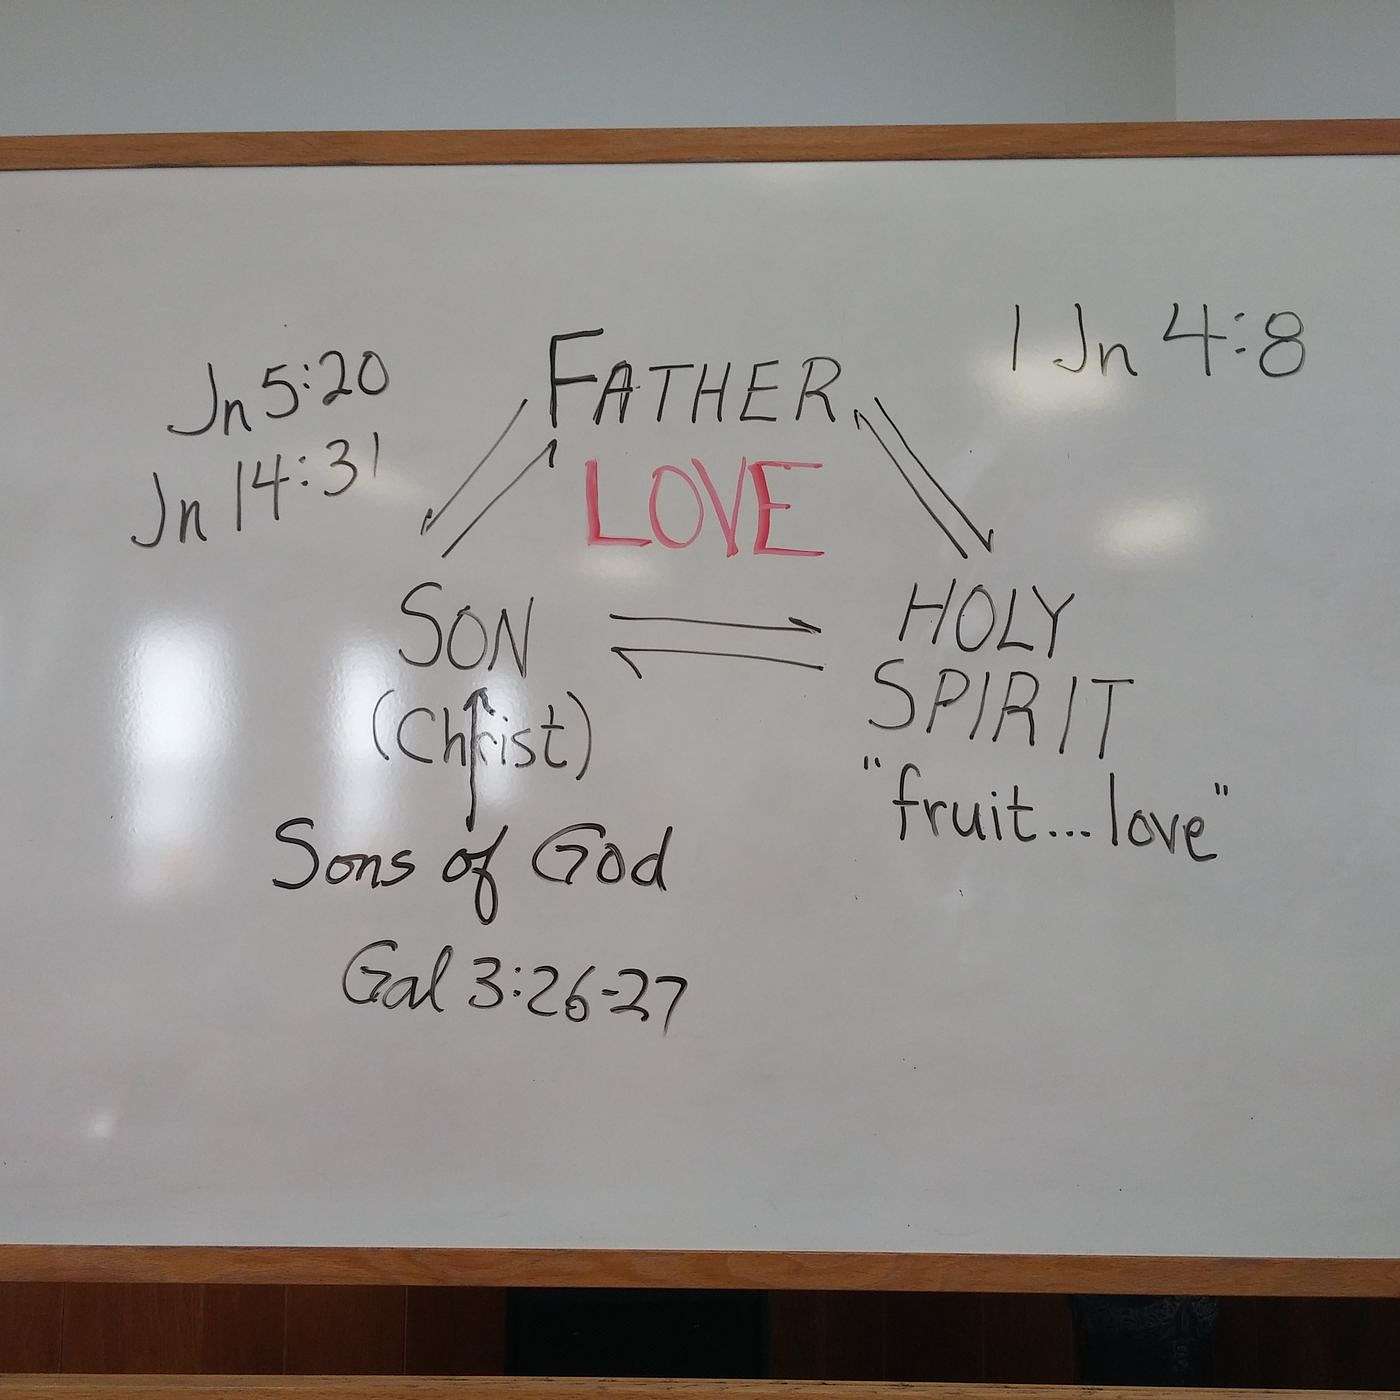 Jn 5:20
Jn 14:31
FATHER
LOVE
1 Jn 4:8
SON
(Christ)
HOLY
SPIRIT
"fruit... love"
Sons of God
Gal 3:26-27